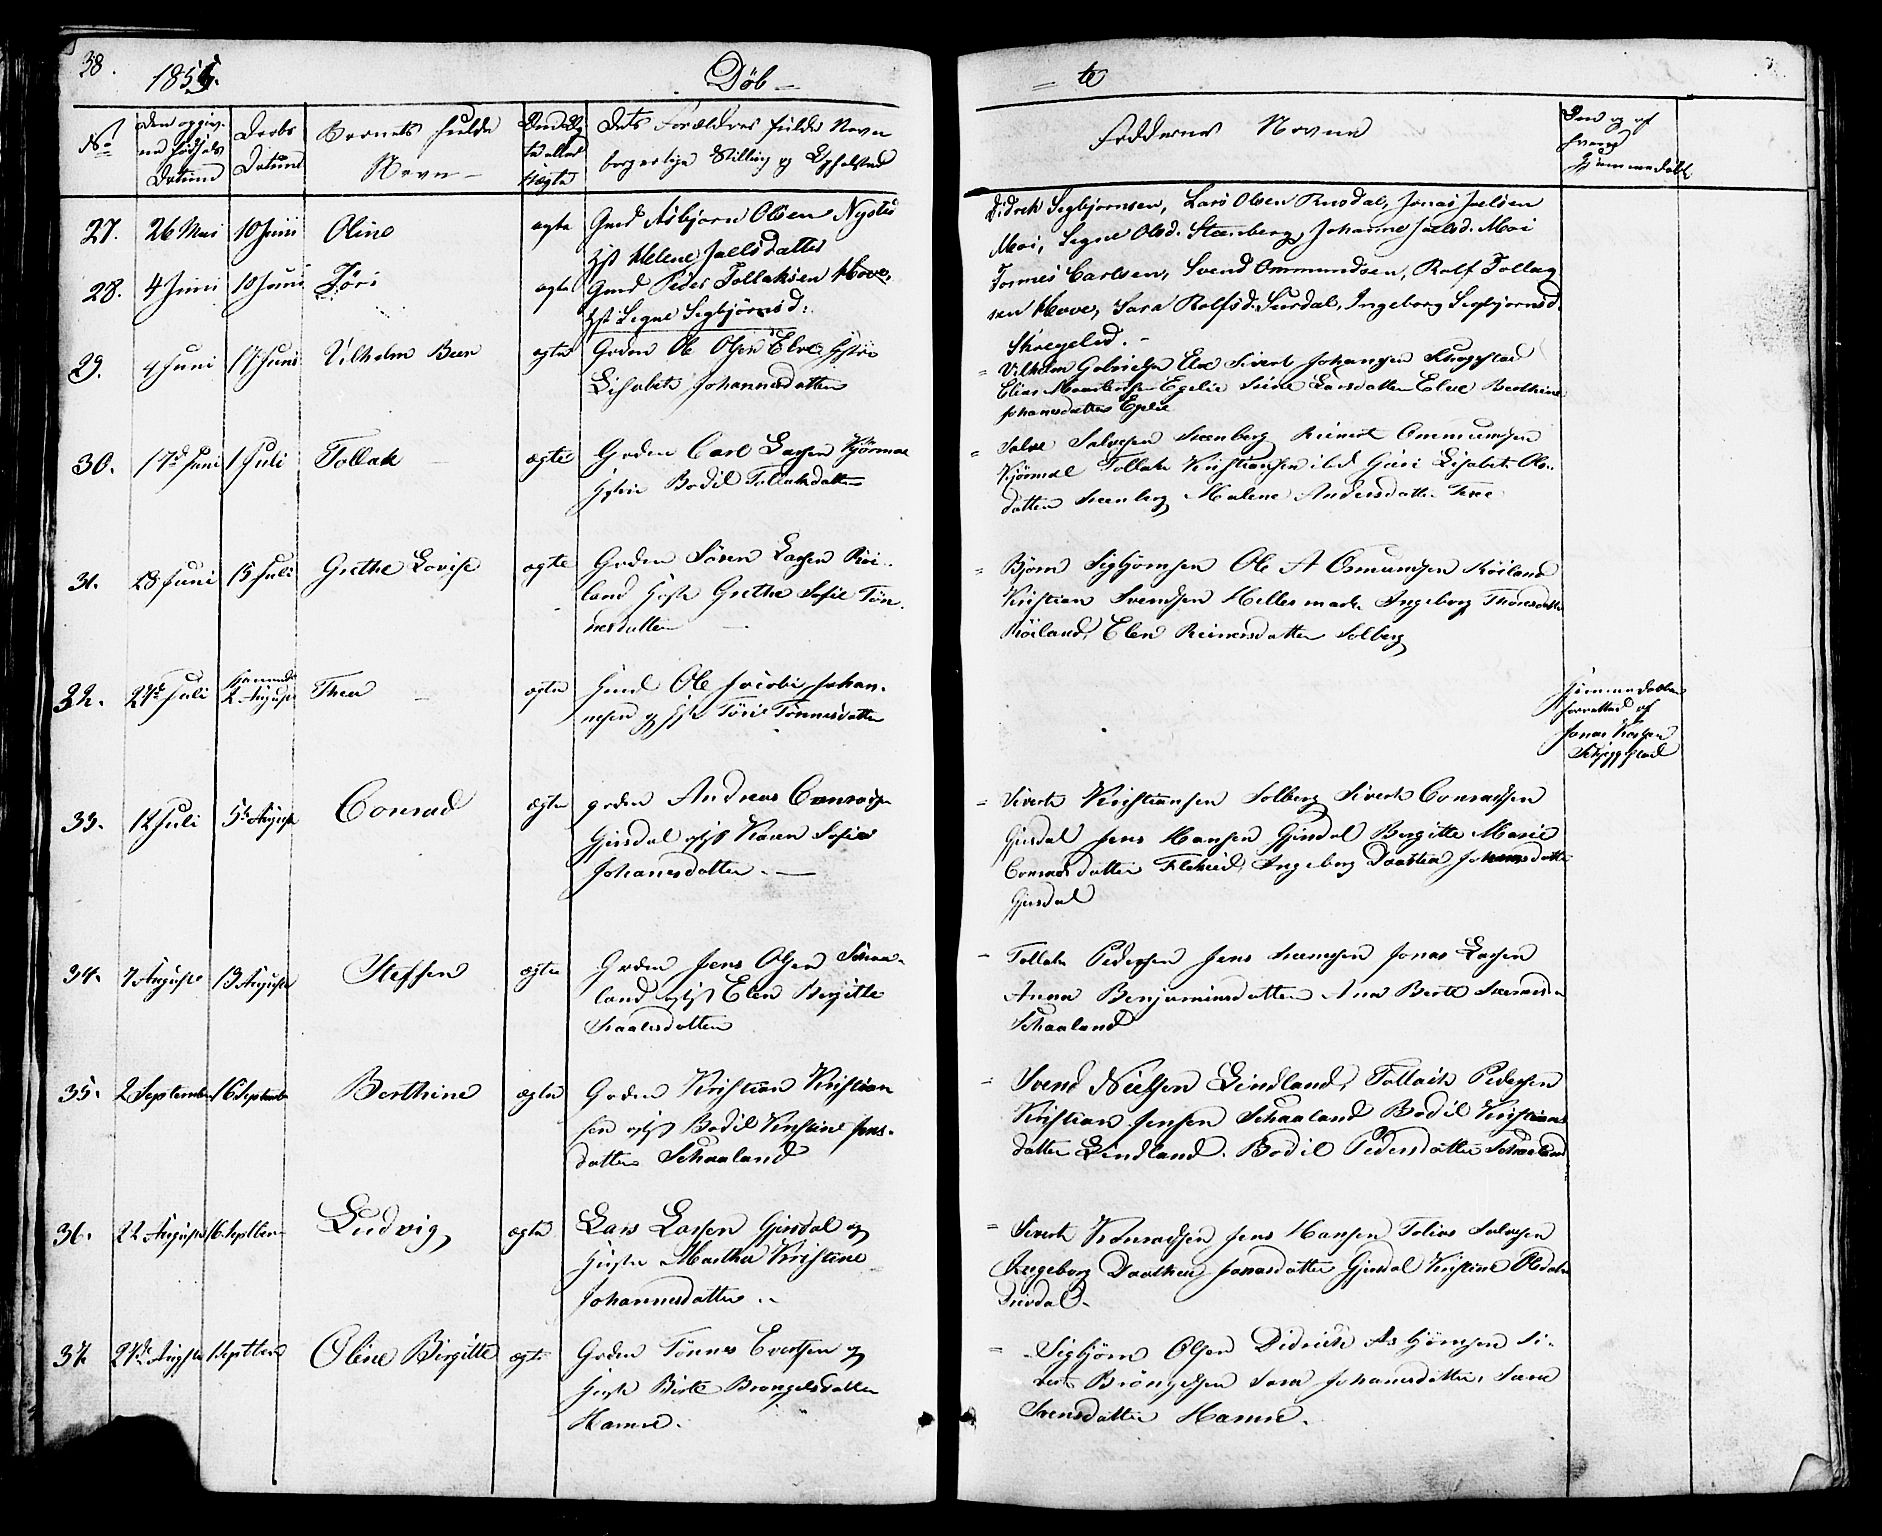 38.
1855.
Døb-
-te
No
Den opgiv-
ne Fødsels
Datum
Daabs
Datum
Barnets fulde
Navn
ægte
Dets Forældres fulde Navn
borgerlige Stilling og Opholdsted
Faddernes Navne
hvem
hjemmedøbt
27. 26 Mai 10 Juni Oline ægte Gmd Asbjørn Olsen Nysted
Hst Helene Joelsdatter
Didrek Segbjørnsen, Lars Olsen Rusdal, Jonas Joelsen
Moi, Segne Olsd. Steenberg, Johanne Joelsd. Moi
28. 4 Juni 10 Juni Tøri ægte Gmd Peder Tollaksen Hove,
Hst Segne Segbjørnsd:
Tønnes Carlsen, Svend Ommundsen, Rolf Tollag
sen Hove, Sara Rolfsd. Surdal, Ingeborg Segbjørnsd.
Skregeled.
29. 4 Juni 17 Juni Vilhelm Beer ægte Grdm Ole Olsen Elve Hstru
Lisabet Johannesdatter
Vilhelm Gabrielsen Elve Sivert Johansen Skogstad
Elias Egelie Larsdatter Elve Berthine
Johannesdatter Egelie
30. 17de Juni 1 Juli Tollak ægte Grdm Carl Larsen Kjørmoe
Hstru Bodil Tollaksdatter
Salve Salvesen Steenberg Reinert Ommundsen
Kjørmoe Tollak Kristiansen ibd Lisabet Ols-
datter Steenberg Malene Andersdatter
31. 28 Juni 15 Juli Grethe Lovise ægte Grdm Søren Larsen Røi-
land Hst Grethe Sofie Tøn-
nesdatter
Bjørn Sigbjørnsen Ole A Osmundsen Røiland
Kristian Svendsen Hellesmark Ingeborg
Røiland, Elen Reinersdatter Solberg
32. 27de Juli 2 August Thea - ægte Gmd Ole Jacob Johan-
nesen og Hst Tøri Tønnesdatter
Hjemmedøbt
forrettet af
Jonas
33. 12 Juli 5te August Conrad ægte grdm Andreas Conradsen
Gjusdal og Hst Karen Sofie
Johanesdatter.
Sivert Kristiansen Solberg Sivert Conradsen
Gjusdal Jens Hansen Gjusdal Bergitte Marie
Conradsdatter Ingeborg Dorthea
Gjusdal
34. 7 August 13 August Steffen ægte Grdm Jens Olsen Skaa-
land og Hst Elen Bergitte
Tollak Pedersen Jens Jonas Larsen
Anna Benjaminsdatter Ana Berte
Skaaland
35. 2 September 16 September Berthine ægte Grdm Kristian Kristian
sen og Hst Bodil Kirstine Jens-
datter Schaaland
Svend Nielsen Lindland, Tollack Pedersen
Kristian Jensen Schaaland Bodil Kristians
datter Lindland. Bodil Pedersdatter Schaaland
36. 22 August 16 Septber Ludvig ægte Lars Larsen Gjusdal og
Hustru Martha Kristine
Johannesdatter
Sivert Konradsen Jens Hansen Tobias Salvesen
Ingeborg Dorthea Jonasdatter Gjusdal Kirstine Olsdatter
Surdal.
37. 27de August Septber Oline Birgitte ægte Grdm Tønnes Evertsen og
Hustru Berte Brongelsdatter
Hamre.
Sigbjørn Olsen Didrick Asbjørnsen Si-
vert Brøngelsen Sara Johannesdatter, Sara
Svensdatter Hamre.